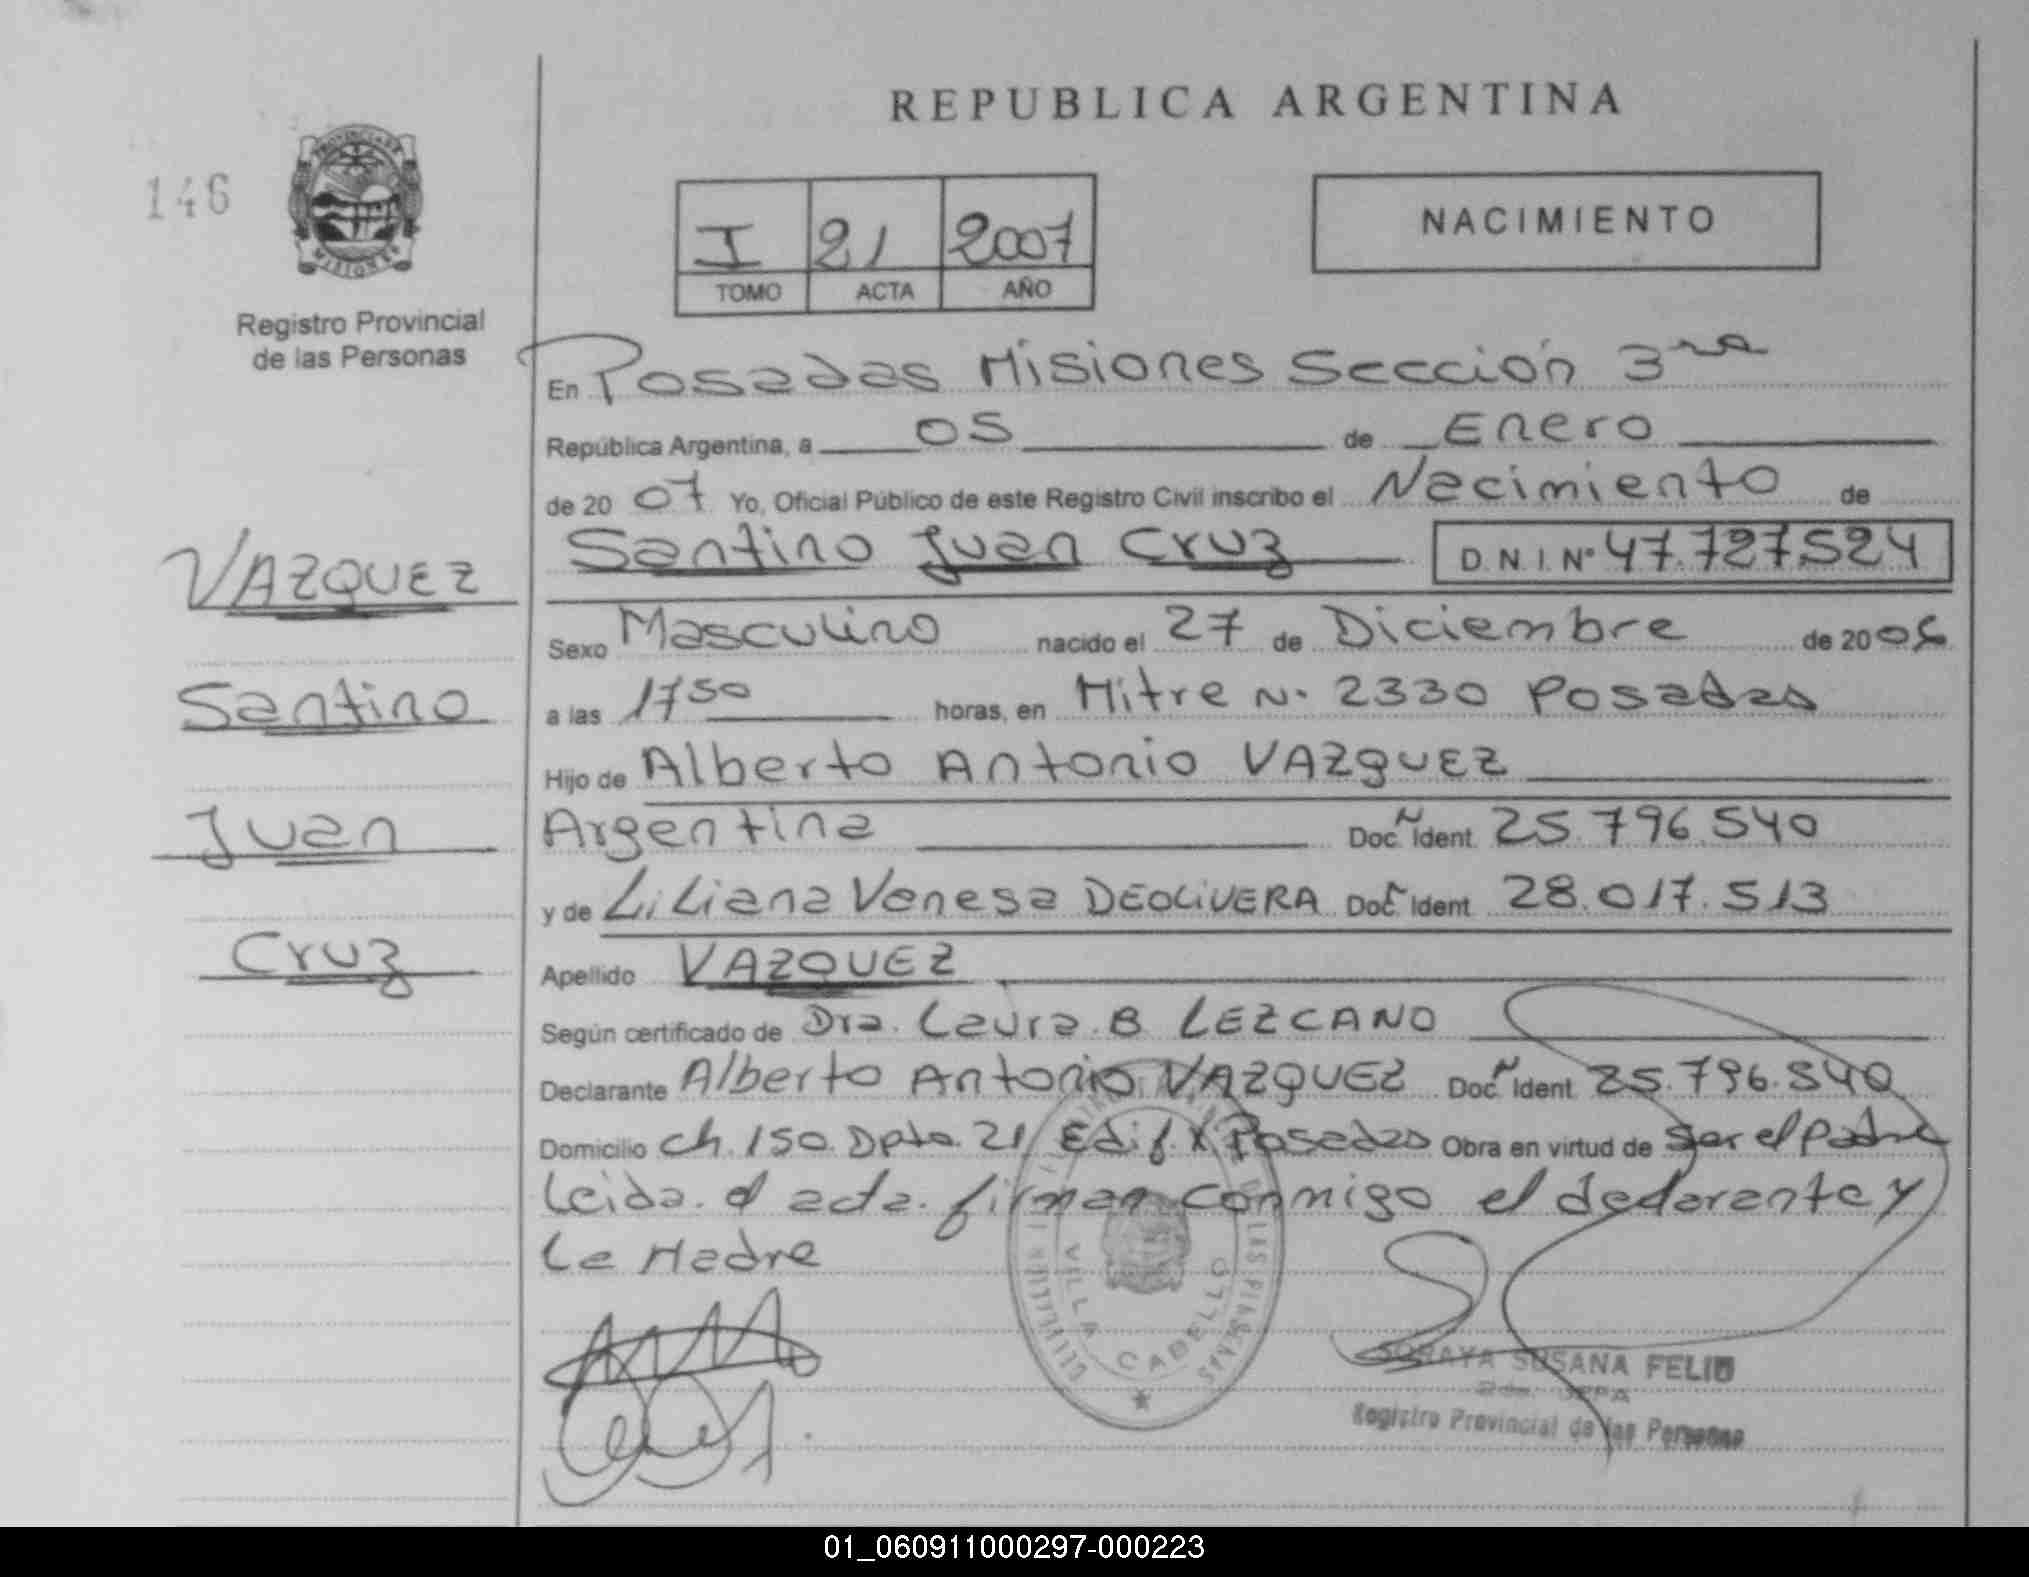 REPUBLICA ARGENTINA
146
PROVINCIA DE
MISIONES
Registro Provincial
de las Personas
I 21 2007
TOMO ACTA AÑO
NACIMIENTO
En Posadas Misiones Sección 3ra
República Argentina, a 05 de Enero
de 2007 Yo, Oficial Público de este Registro Civil inscribo el Nacimiento de
Santino Juan Cruz D.N.I. Nº 47.727.524
VAZQUEZ
Santino
Juan
Cruz
Sexo Masculino nacido el 27 de Diciembre de 2006
a las 1750 horas, en Mitre N. 2330 Posadas
Hijo de Alberto Antonio VAZQUEZ
Argentina Doc. Ident. 25.796.540
y de Liliana Vanesa DEOLIVERA Doc. Ident. 28.017.513
Apellido VAZQUEZ
Según certificado de Dra. Laura B LEZCANO
Declarante Alberto Antonio VAZQUEZ Doc. Ident. 25.796.540
Domicilio Ch. 150. Dpto. 21 Edif. X Posadas Obra en virtud de ser el padre
Leida el acta. firman conmigo el declarante y
la Madre
VILLA CABELLO
SORAYA SUSANA FELIU
Registro Provincial de las Personas
01_060911000297-000223